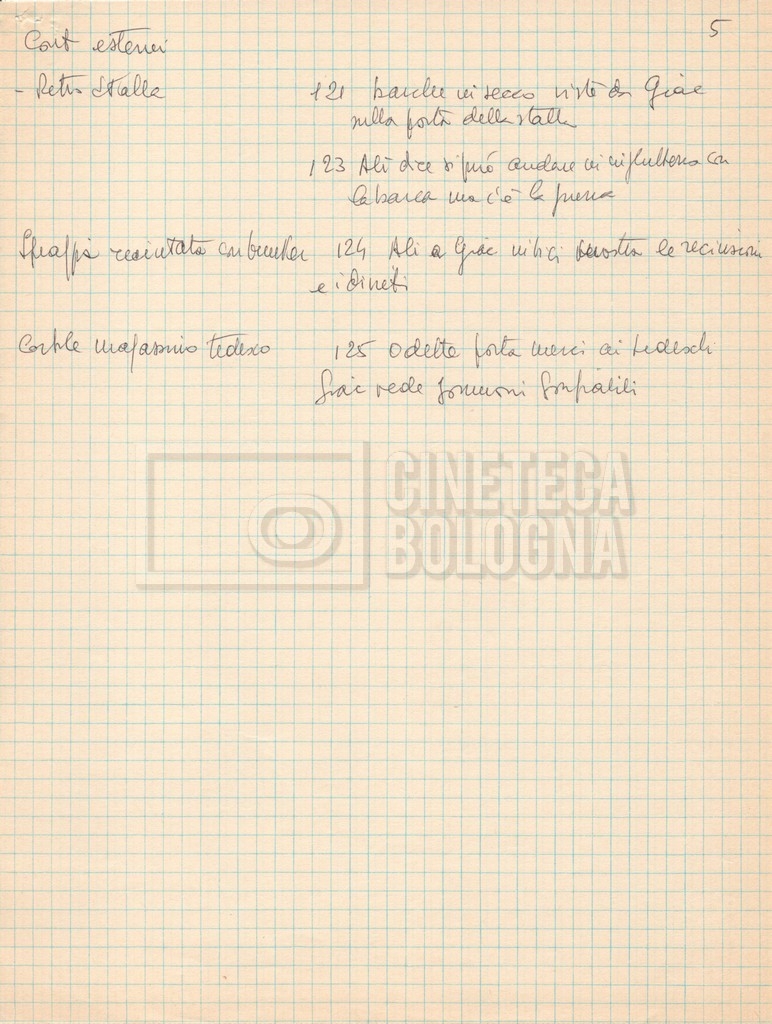 5
Cont esterni
- Retro Stalla
121 barche in secco viste da Giac
sulla porta della stalla
123 Alì dice si può andare in inghilterra con
la barca ma c'è la guerra
Spiaggia recintata con bunker
124 Alì a Giac in bici mostra le recinzioni
e i divieti
Cortile magazzino tedesco
125 Odette porta merci ai tedeschi
Giac vede gommoni gonfiabili
CINETECA
BOLOGNA